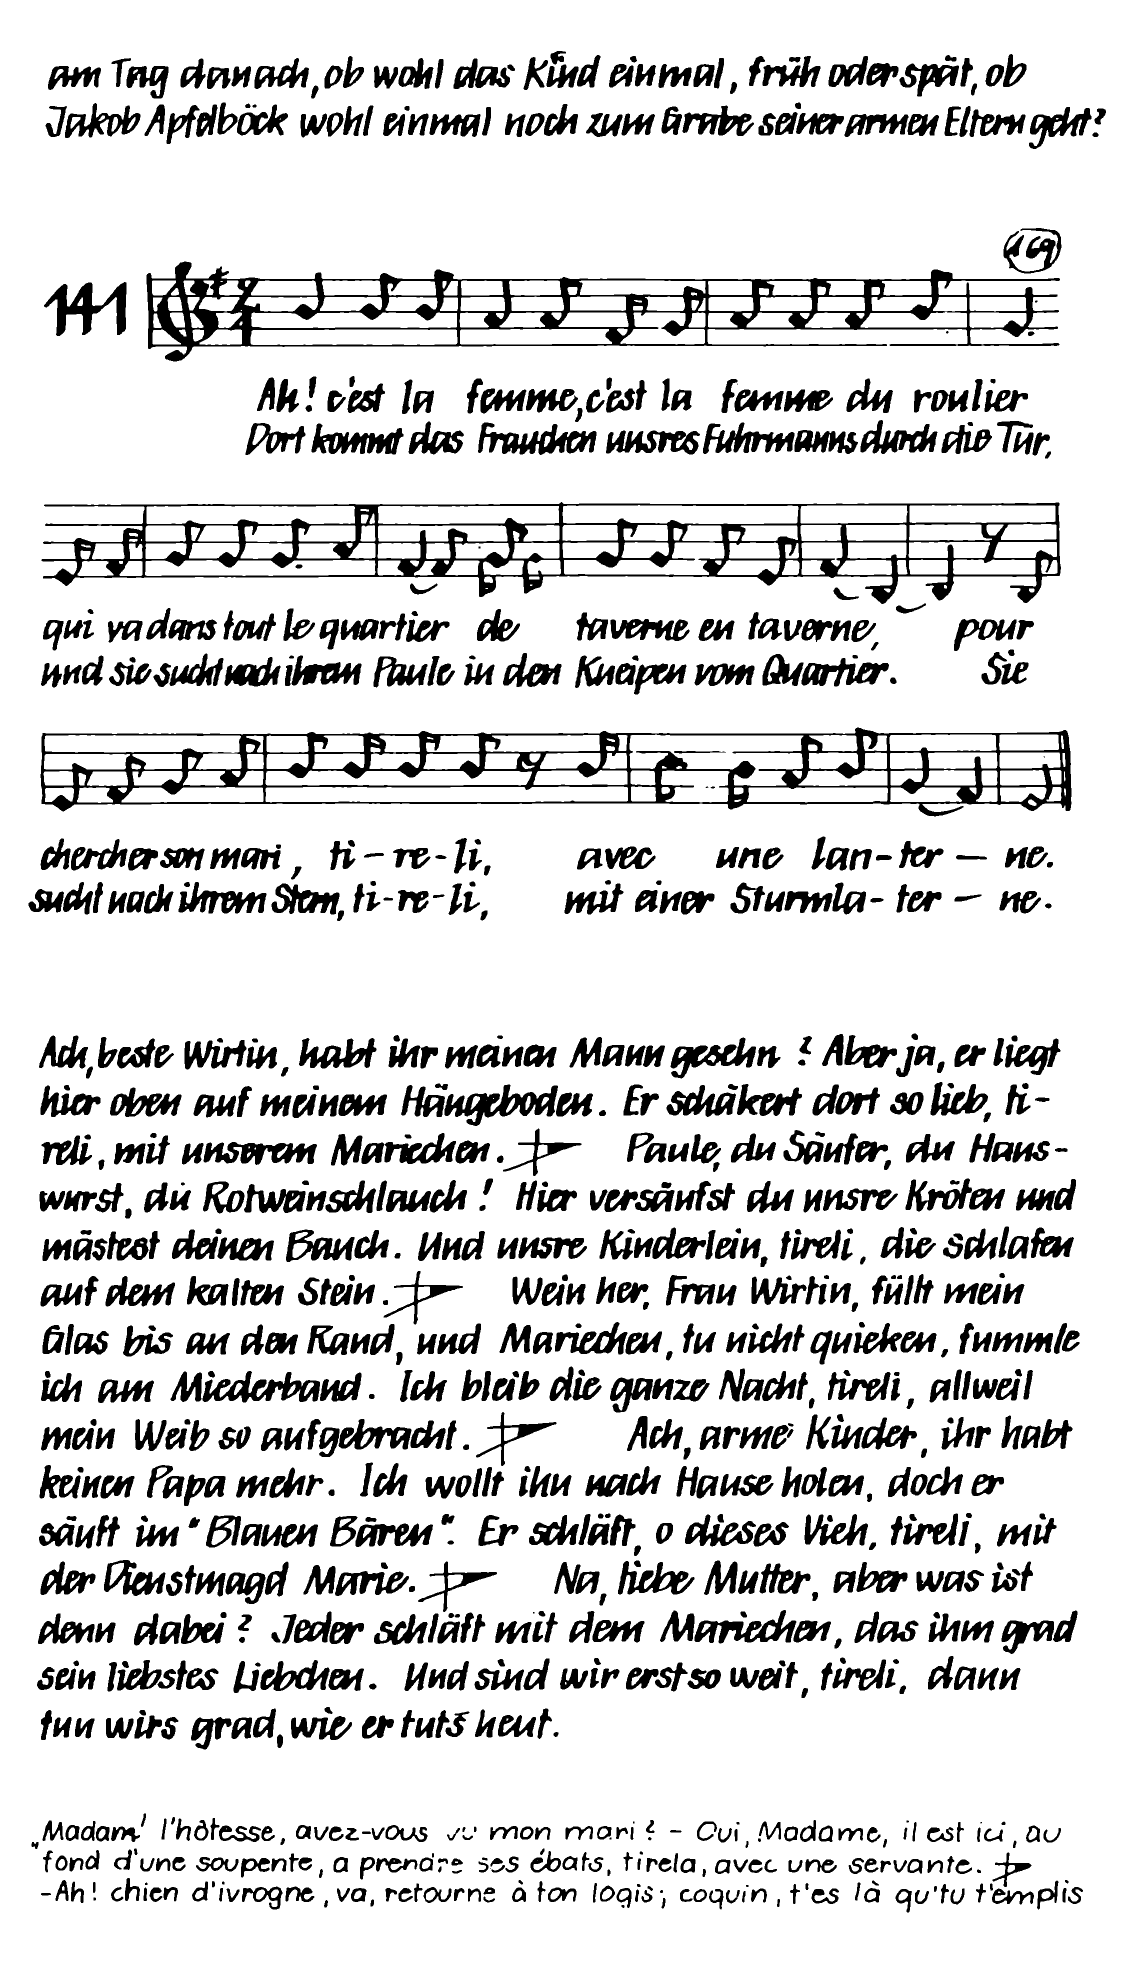 am Tag danach, ob wohl das Kind einmal, früh oder spät, ob
Jakob Apfelböck wohl einmal noch zum Grabe seiner armen Eltern geht?
169
141
2
4
Ah! c'est la femme, c'est la femme du roulier
Dort kommt das Frauchen unsres Fuhrmanns durch die Tür,
qui va dans tout le quartier de taverne en taverne, pour
und sie sucht nach ihrem Paule in den Kneipen vom Quartier. Sie
chercher son mari, ti - re - li, avec une lan - ter - ne.
sucht nach ihrem Stern, ti - re - li, mit einer Sturmla - ter - ne.
Ach, beste Wirtin, habt ihr meinen Mann gesehn? Aber ja, er liegt
hier oben auf meinem Hängeboden. Er schäkert dort so lieb, ti-
reli, mit unserem Mariechen. Paule, du Säufer, du Hans-
wurst, du Rotweinschlauch! Hier versäufst du unsre Kröten und
mästest deinen Bauch. Und unsre Kinderlein, tireli, die schlafen
auf dem kalten Stein. Wein her, Frau Wirtin, füllt mein
Glas bis an den Rand, und Mariechen, tu nicht quieken, fummle
ich am Miederband. Ich bleib die ganze Nacht, tireli, allweil
mein Weib so aufgebracht. Ach, arme Kinder, ihr habt
keinen Papa mehr. Ich wollt ihn nach Hause holen, doch er
säuft im "Blauen Bären". Er schläft, o dieses Vieh, tireli, mit
der Dienstmagd Marie. Na, liebe Mutter, aber was ist
denn dabei? Jeder schläft mit dem Mariechen, das ihm grad
sein liebstes Liebchen. Und sind wir erst so weit, tireli, dann
tun wirs grad, wie er tuts heut.
„Madam' l'hôtesse, avez-vous vu mon mari? - Oui, Madame, il est ici, au
fond d'une soupente, a prendre ses ébats, tirela, avec une servante.
-Ah! chien d'ivrogne, va, retourne à ton logis; coquin, t'es là qu'tu t'emplis